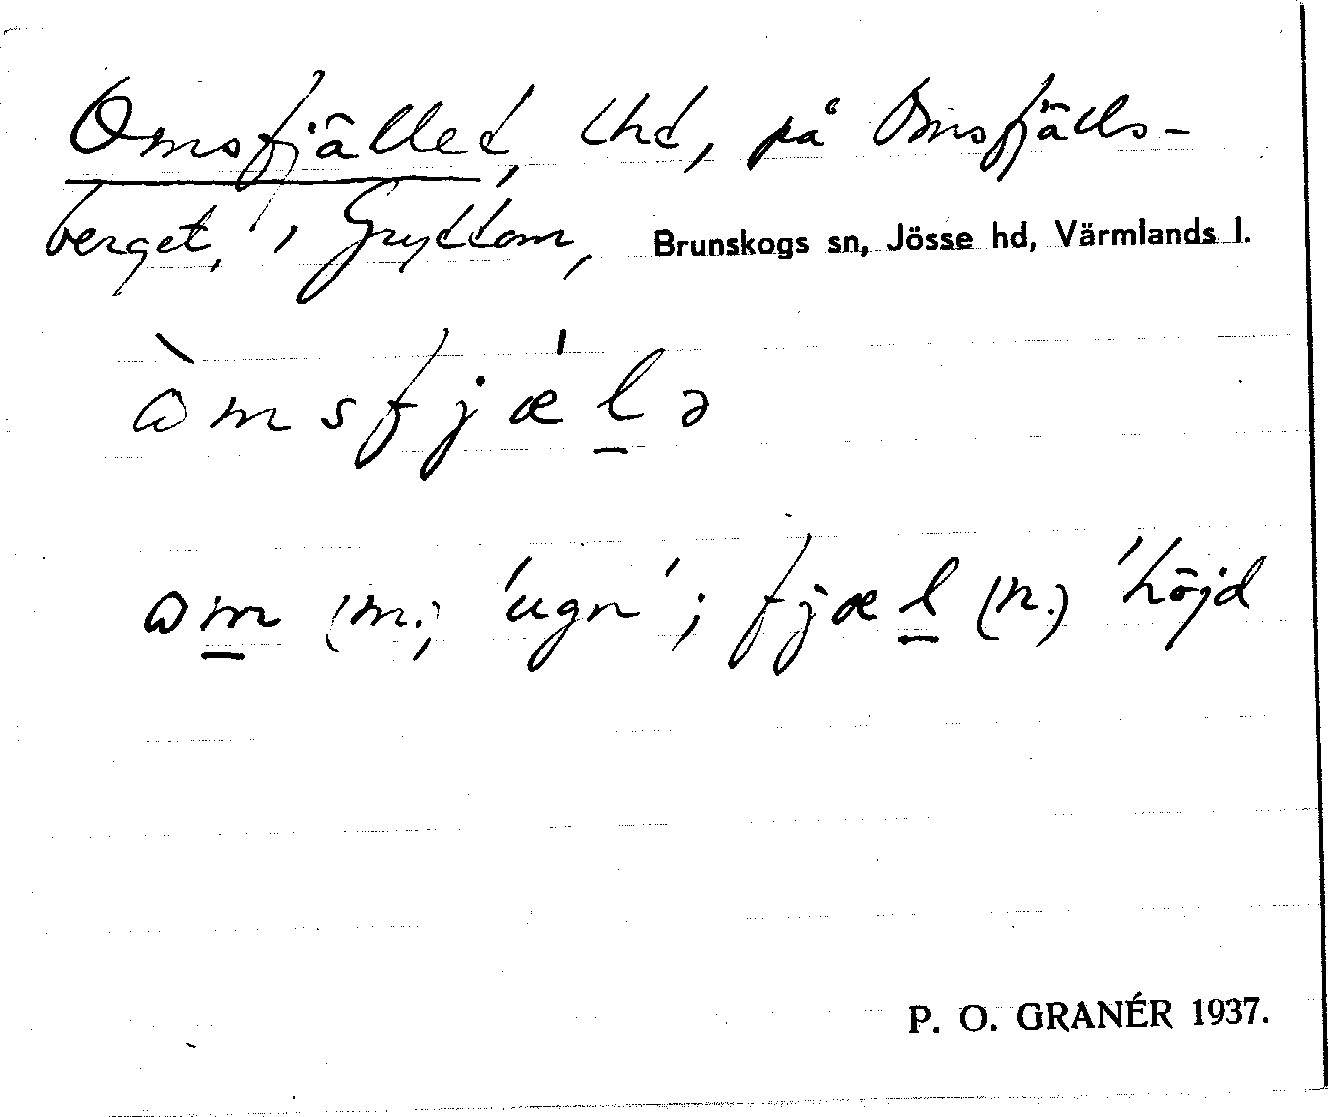 Omsfjället, lhd, på Omsfjälls-
berget, i Gryttom, Brunskogs sn, Jösse hd, Värmlands l.
ɷ̀msfjæ̍l̲ə
ɷm̲ (m.) 'ugn'; fjæl̲ (n.) 'höjd
P. O. GRANÉR 1937.